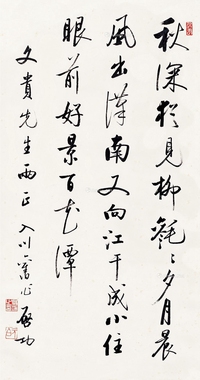 秋深猶見柳毿〻夕月晨
風出漢南又向江干成小住
眼前好景百花潭
文貴先生兩正 入川舊作 啓功